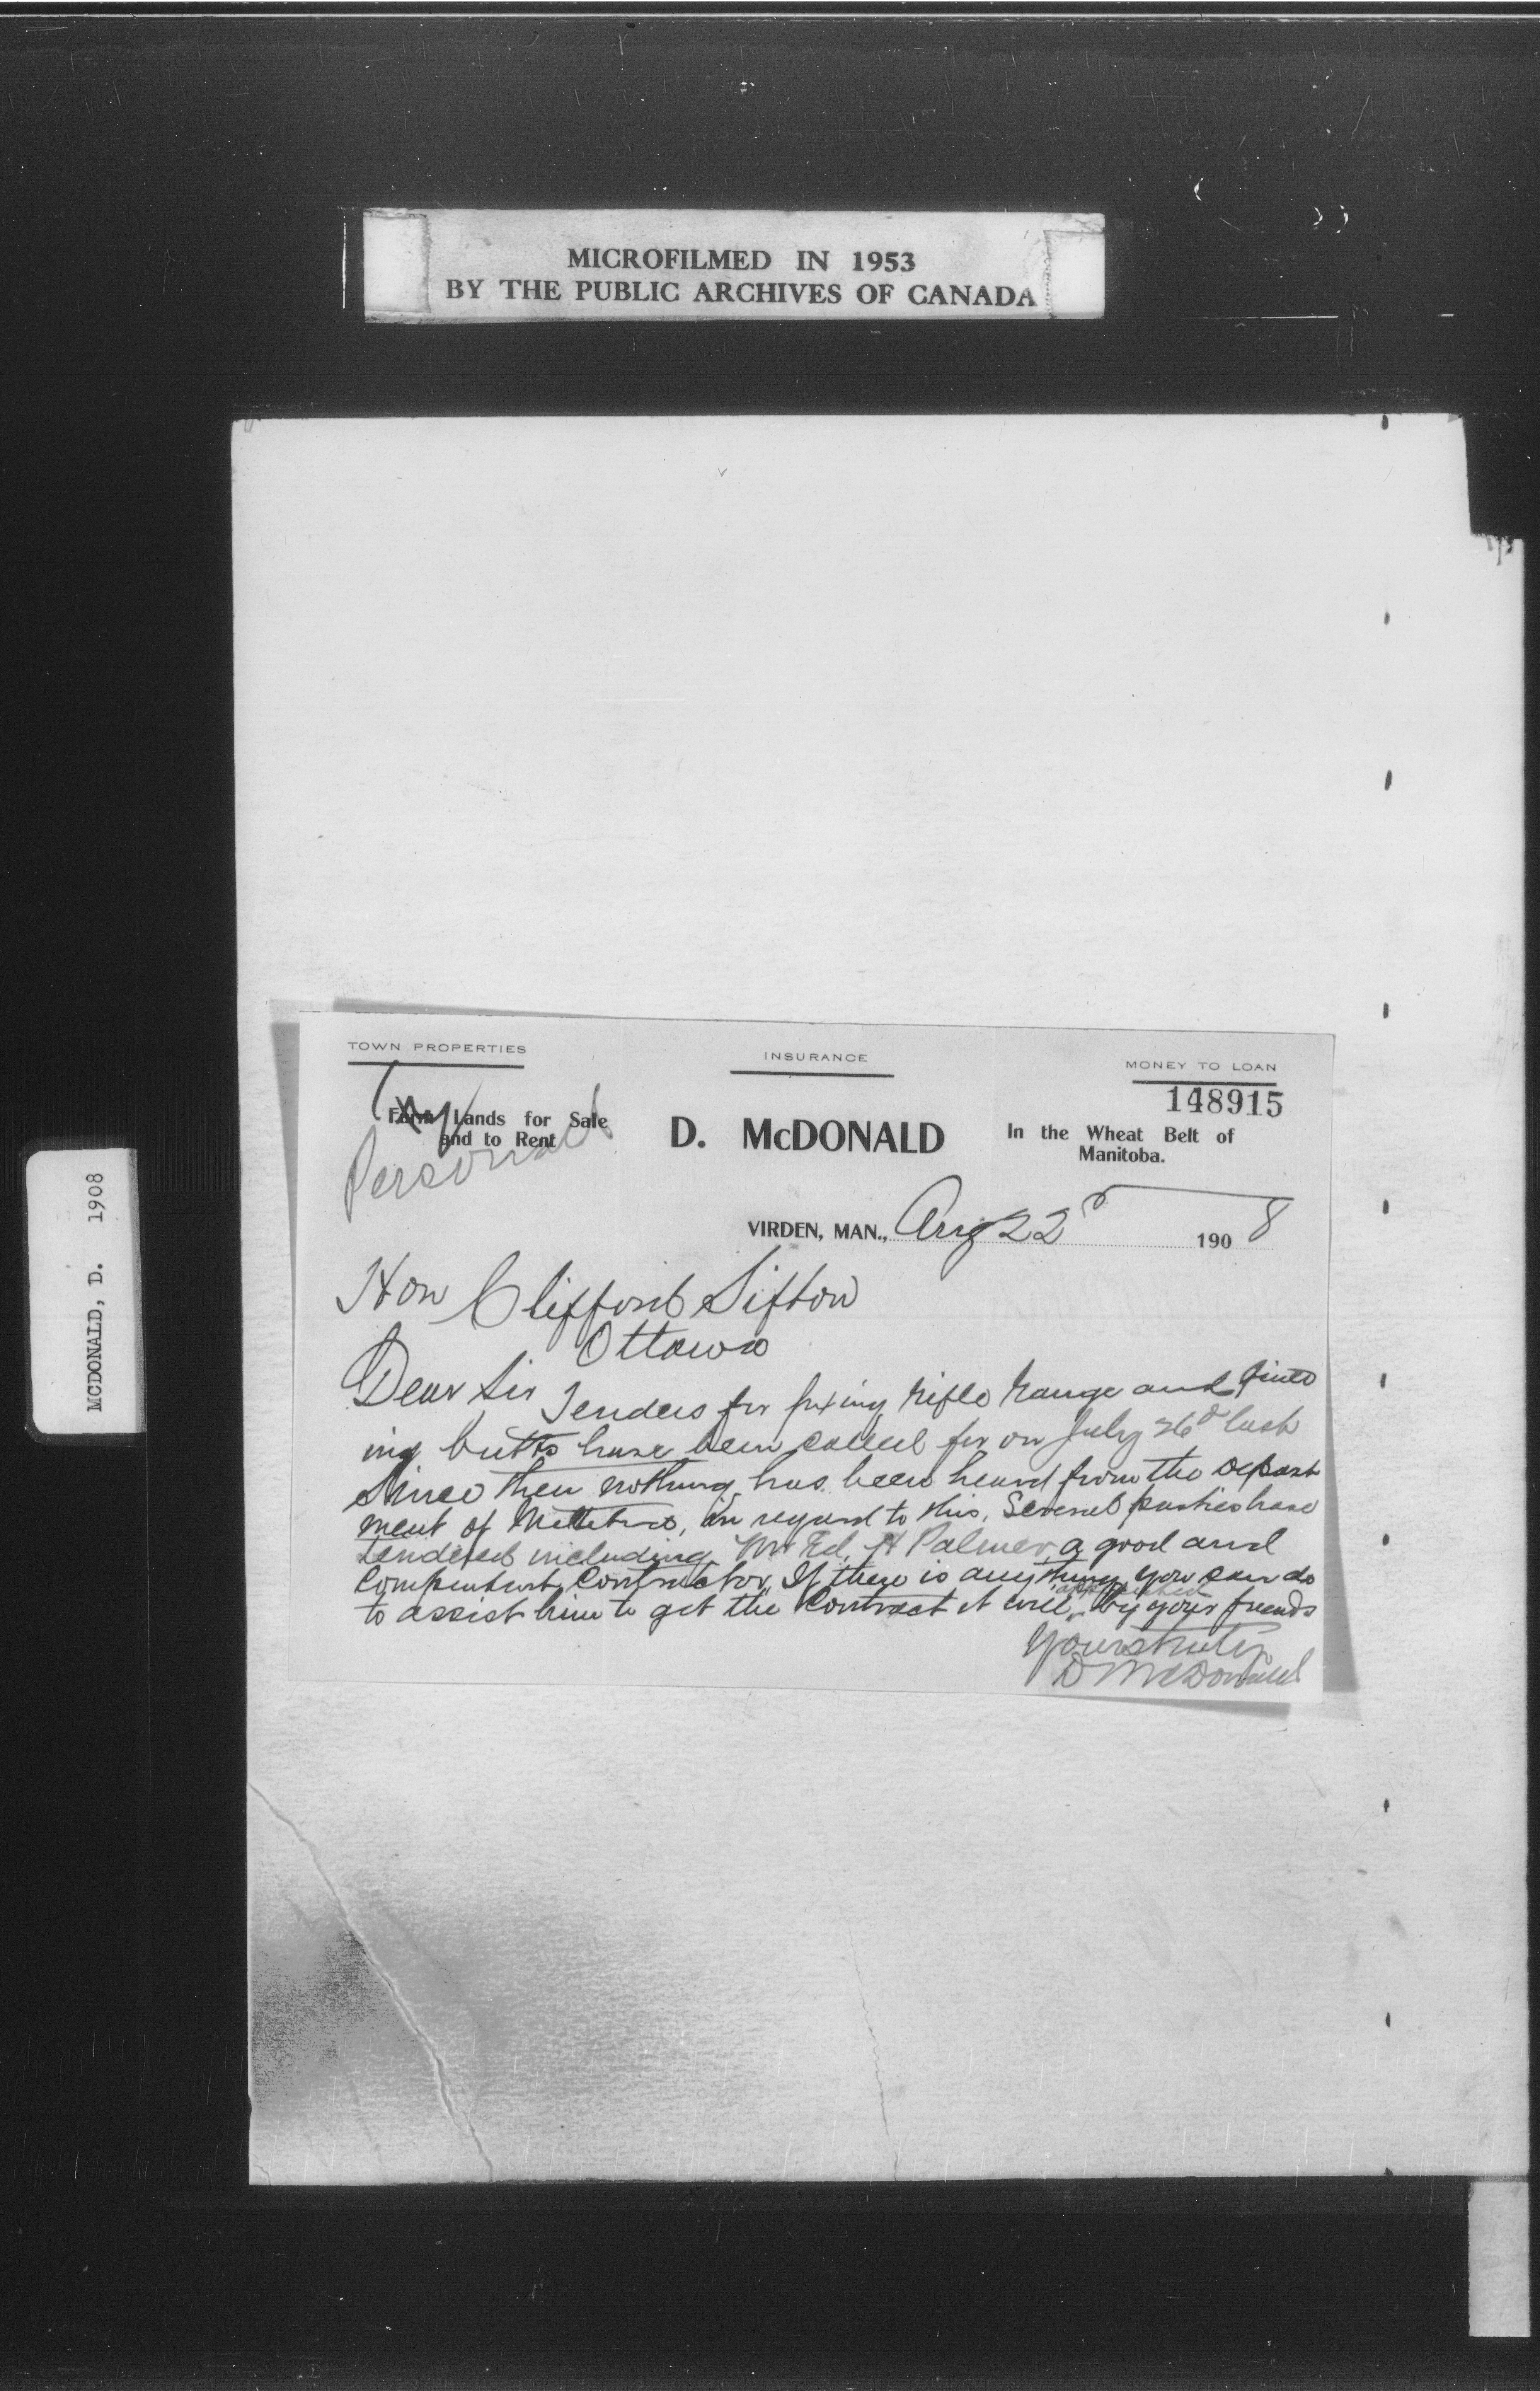 MICROFILMED IN 1953
BY THE PUBLIC ARCHIVES OF CANADA
MCDONALD, D. 1908
TOWN PROPERTIES
INSURANCE
MONEY TO LOAN
148915
Farm Lands for Sale
and to Rent
Personal
D. McDONALD
In the Wheat Belt of
Manitoba.
VIRDEN, MAN., Aug 22d 1908
Hon Clifford Sifton
Ottawa
Dear Sir Tenders for fixing Rifle Range and
ing butts have been called for on July 26d last
Since then nothing has been heard from the Depart
ment of Militia, in regard to this. Several parties have
tendered including Mr Ed. H Palmer a good and
Competent Contractor. If there is anything you can do
to assist him to get the Contract it will appreciated by your friends
Yours truly
D McDonald